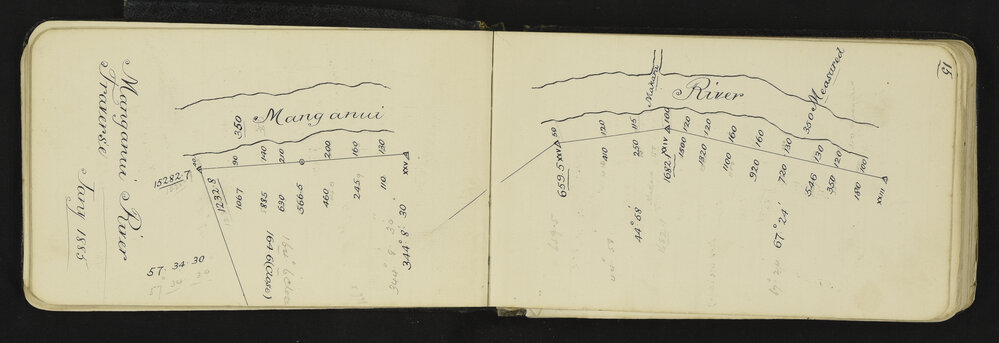 Manganui River
Traverse
Jany 1885
57. 34. 30
Manganui
350
15282.7
1232.8
90
140
210
200
160
130
1067
885
630
566.5
460
245
110
XXV
164.6 (Close)
344° 8' 30
15
River
Makara
350 Measured
50
120
115
100
120
120
160
160
130
130
120
100
XXV
659.5
410
250
1682.1
XXIV
1500
1320
1100
920
720
546
350
180
XXIII
44° 58'
67° 24'